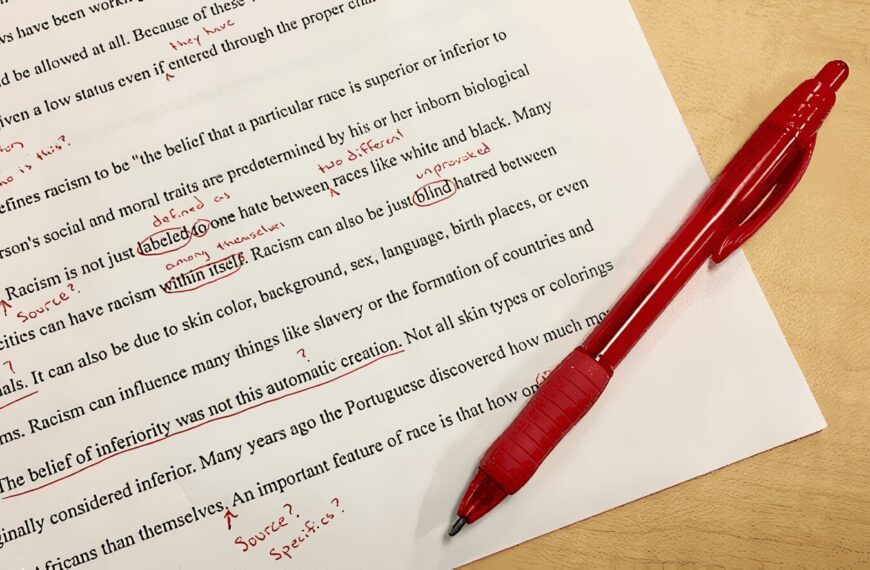 ws have been work
d be allowed at all. Because of these
they have
given a low status even if entered through the proper
efines racism to be "the belief that a particular race is superior or inferior to
who is this?
erson's social and moral traits are predetermined by his or her inborn biological
two different
unprovoked
Racism is not just labeled to one hate between races like white and black. Many
defined as
Source?
among themselves
cities can have racism within itself. Racism can also be just blind hatred between
?
als. It can also be due to skin color, background, sex, language, birth places, or even
ms. Racism can influence many things like slavery or the formation of countries and
?
The belief of inferiority was not this automatic creation. Not all skin types or colorings
ginally considered inferior. Many years ago the Portuguese discovered how much
Africans than themselves. An important feature of race is that how
Source?
Specifics?